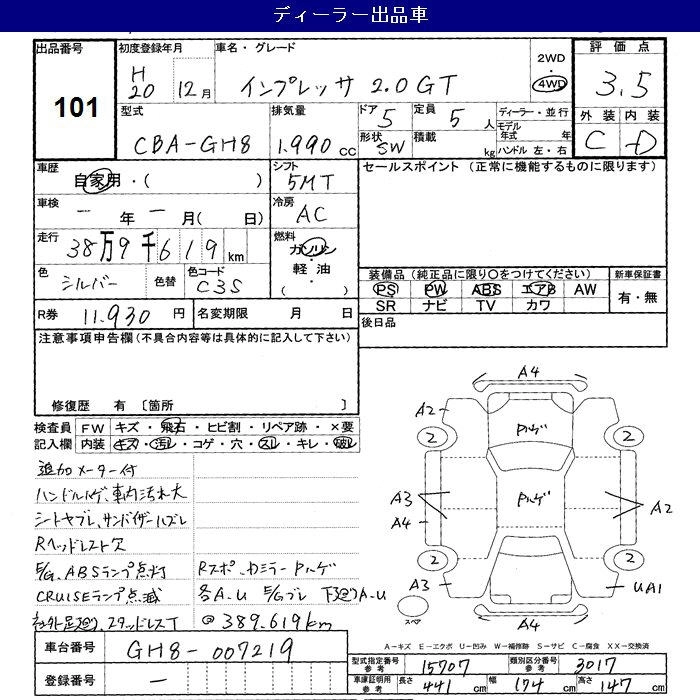 ディーラー出品車
出品番号
101
初度登録年月
H
20 12月
車名・グレード
インプレッサ 2.0GT
2WD
・
4WD
評価点
3.5
外装 内装
C D
型式
CBA-GH8
排気量
1.990 cc
ドア
5
定員
5 人
形状
SW
積載
kg
ディーラー・並行
モデル年式 年
ハンドル 左・右
車歴
自家用・( )
シフト
5MT
セールスポイント(正常に機能するものに限ります)
車検
一 年 一 月( 日)
冷房
AC
走行
38万9千619km
燃料
ガソリン
・
軽油
・
( )
色
シルバー
色替
色コード
C3S
装備品(純正品に限り○をつけてください)
PS PW ABS エアB AW
SR ナビ TV カワ
新車保証書
有・無
R券 11.930 円
名変期限 月 日
後日品
注意事項申告欄(不具合内容等は具体的に記入して下さい)
修復歴 有 〔箇所 〕
検査員 FW キズ・飛石・ヒビ割・リペア跡・×要
記入欄 内装 キズ・汚レ・コゲ・穴・スレ・キレ・破レ
追加メーター付
ハンドルハゲ、車内汚れ大
シートヤブレ、サンバイザーハズレ
Rヘッドレスト欠
E/G、ABSランプ点灯
CRUISEランプ点滅
社外足廻り、スタッドレスT
Rスポ、カミラーPハゲ
各A.U E/Gブレ 下廻りA.U
@389.619km
A4
A2
2
Pハゲ
2
A3
A4
Pハゲ
A2
2
2
A3
UA1
スペア
A4
A-キズ E-エクボ U-凹み W-補修跡 S-サビ C-腐食 XX-交換済
車台番号 GH8-007219
登録番号 一
型式指定番号参考 15707
類別区分番号参考 3017
車庫証明用参考 長さ 441 幅 174 高さ 147 cm